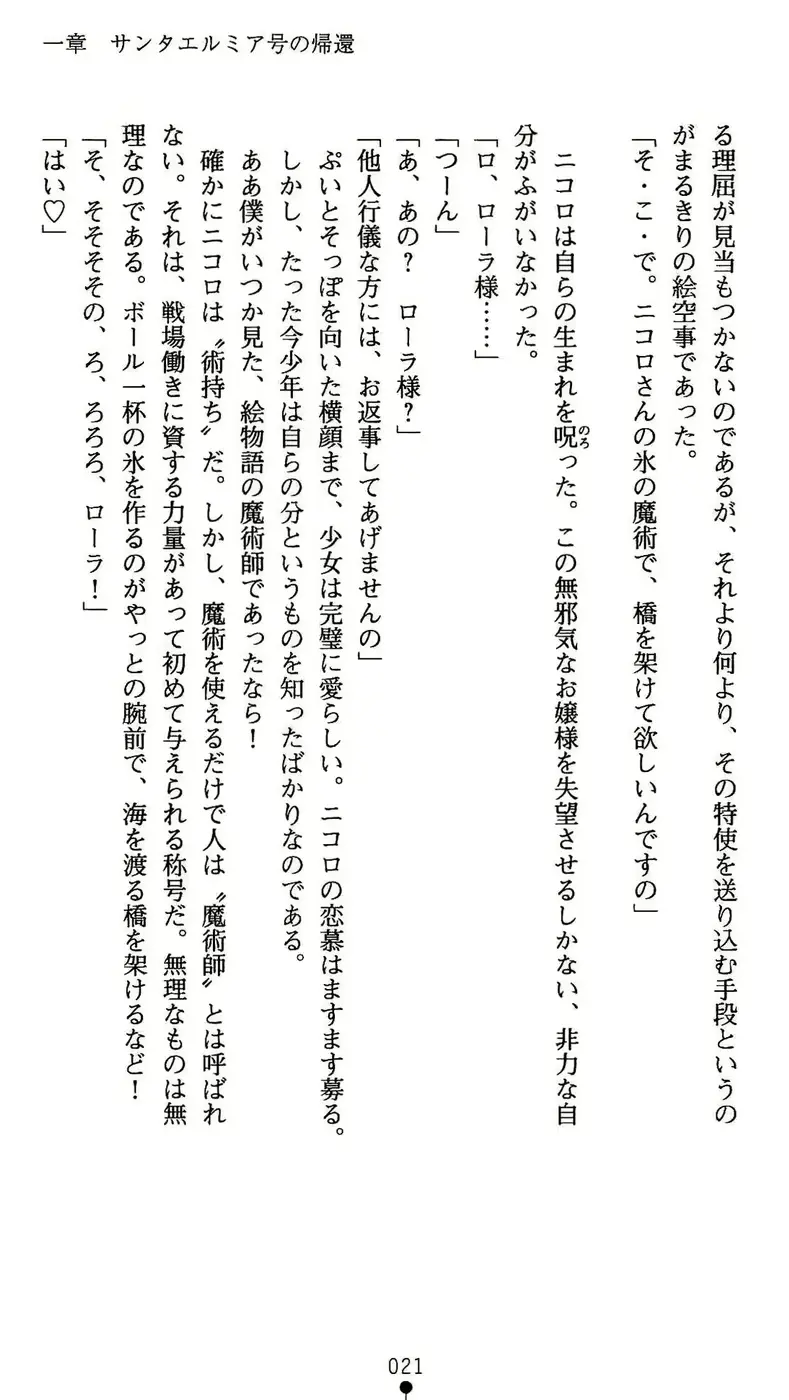 一章　サンタエルミア号の帰還
る理屈が見当もつかないのであるが、それより何より、その特使を送り込む手段というの
がまるきりの絵空事であった。
「そ・こ・で。ニコロさんの氷の魔術で、橋を架けて欲しいんですの」
ニコロは自らの生まれを呪った。この無邪気なお嬢様を失望させるしかない、非力な自
のろ
分がふがいなかった。
「ロ、ローラ様……」
「つーん」
「あ、あの？　ローラ様？」
「他人行儀な方には、お返事してあげませんの」
ぷいとそっぽを向いた横顔まで、少女は完璧に愛らしい。ニコロの恋慕はますます募る。
しかし、たった今少年は自らの分というものを知ったばかりなのである。
ああ僕がいつか見た、絵物語の魔術師であったなら！
確かにニコロは〝術持ち〟だ。しかし、魔術を使えるだけで人は〝魔術師〟とは呼ばれ
ない。それは、戦場働きに資する力量があって初めて与えられる称号だ。無理なものは無
理なのである。ボール一杯の氷を作るのがやっとの腕前で、海を渡る橋を架けるなど！
「そ、そそそその、ろ、ろろろ、ローラ！」
「はい♡」
021